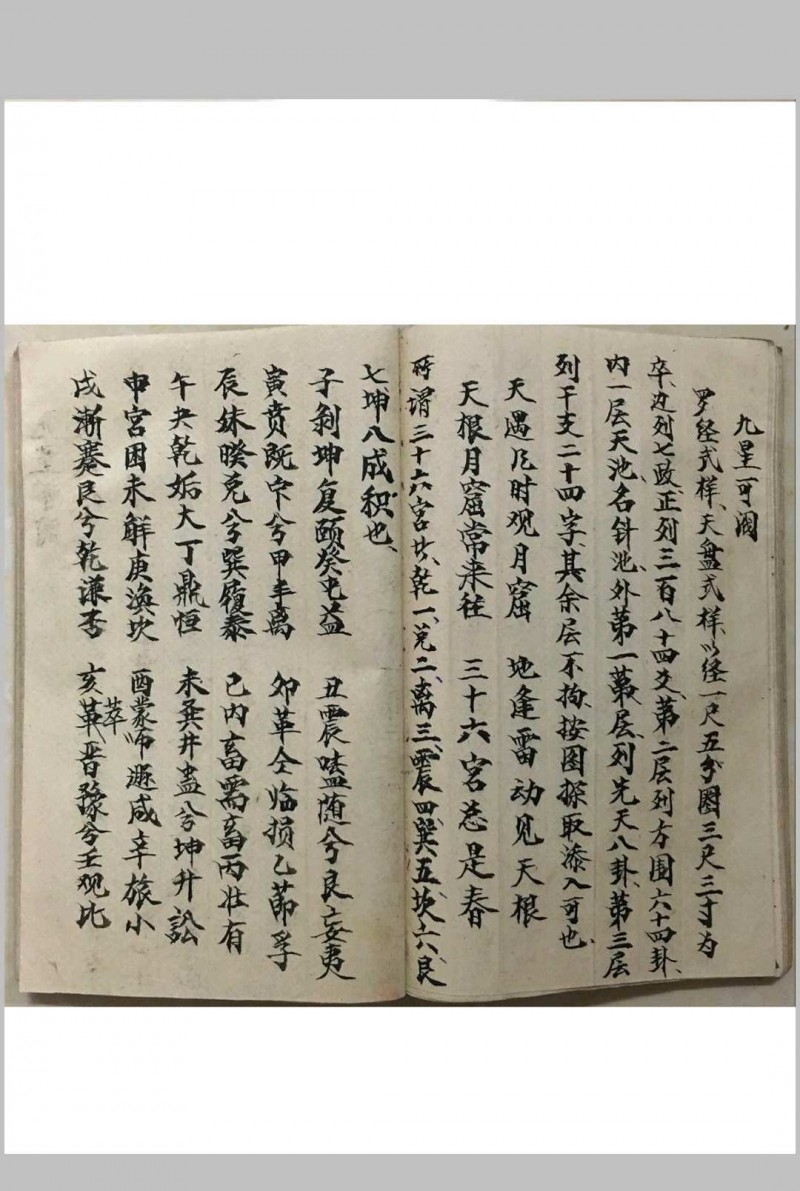 九星可阅
罗经式样、天盘式样、以径一尺五分图三尺三寸为
卒、边列七政、正列三百八十四爻、第二层列方围六十四卦、
内一层天池、名针池、外第一第、层、列先天八卦、第三层
列干支二十四字、其余层不拘、按图探取添入可也、
天遇凡时观月窟 地逢雷动见天根
天根月窟常来往 三十六宫总是春
所谓三十六宫共、乾一、兑二、离三、震四、巽五、坎六、艮
七坤八成积也、
子剥坤复颐癸屯益 丑震嗑随兮艮妄夷
寅贲既兮甲丰离 卯革仝临损乙節孚
辰妹睽兑兮巽履泰 巳内畜需畜丙壮有
午夬乾姤大丁鼎恒 未巽井蛊兮坤升訟
申宫困未解庚渙坎 酉蒙师遯咸辛旅小
戌漸蹇艮兮乾谦否 亥革萃晋豫兮壬观比